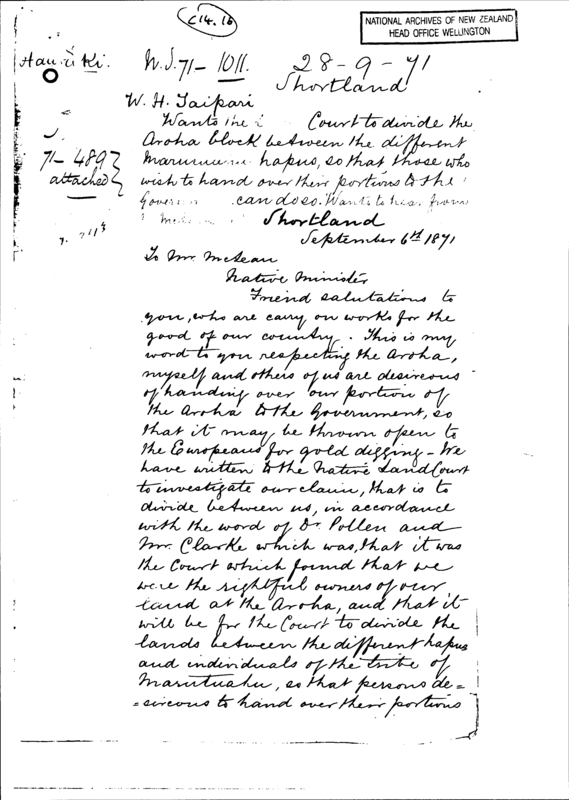 C14.16
NATIONAL ARCHIVES OF NEW ZEALAND
HEAD OFFICE WELLINGTON
Hauraki.
N.S. 71 – 1011.
28 - 9 - 71
Shortland
W. H. Taipari
Wants the Court to divide the
Aroha block between the different
hapus, so that those who
wish to hand over their portions to the
can do so. Wants to hear from
71 – 489
attached
Shortland
September 6th 1871
To Mr. McLean
Native Minister
Friend salutations to
you, who are cany on works for the
good of our country. This is my
word to you respecting the Aroha,
myself and others of us are desireous
of handing over our portion of
the Aroha to the Government, so
that it may be thrown open to
the Europeans for gold digging – We
have written to the Native Land Court
to investigate our claim, that is to
divide between us, in accordance
with the word of Dr. Pollen and
Mr. Clarke which was, that it was
the Court which found that we
were the rightful owners of our
land at the Aroha, and that it
will be for the Court to divide the
lands between the different hapus
and individuals of the tribe of
Marutuahu, so that persons de=
=sireous to hand over their portions